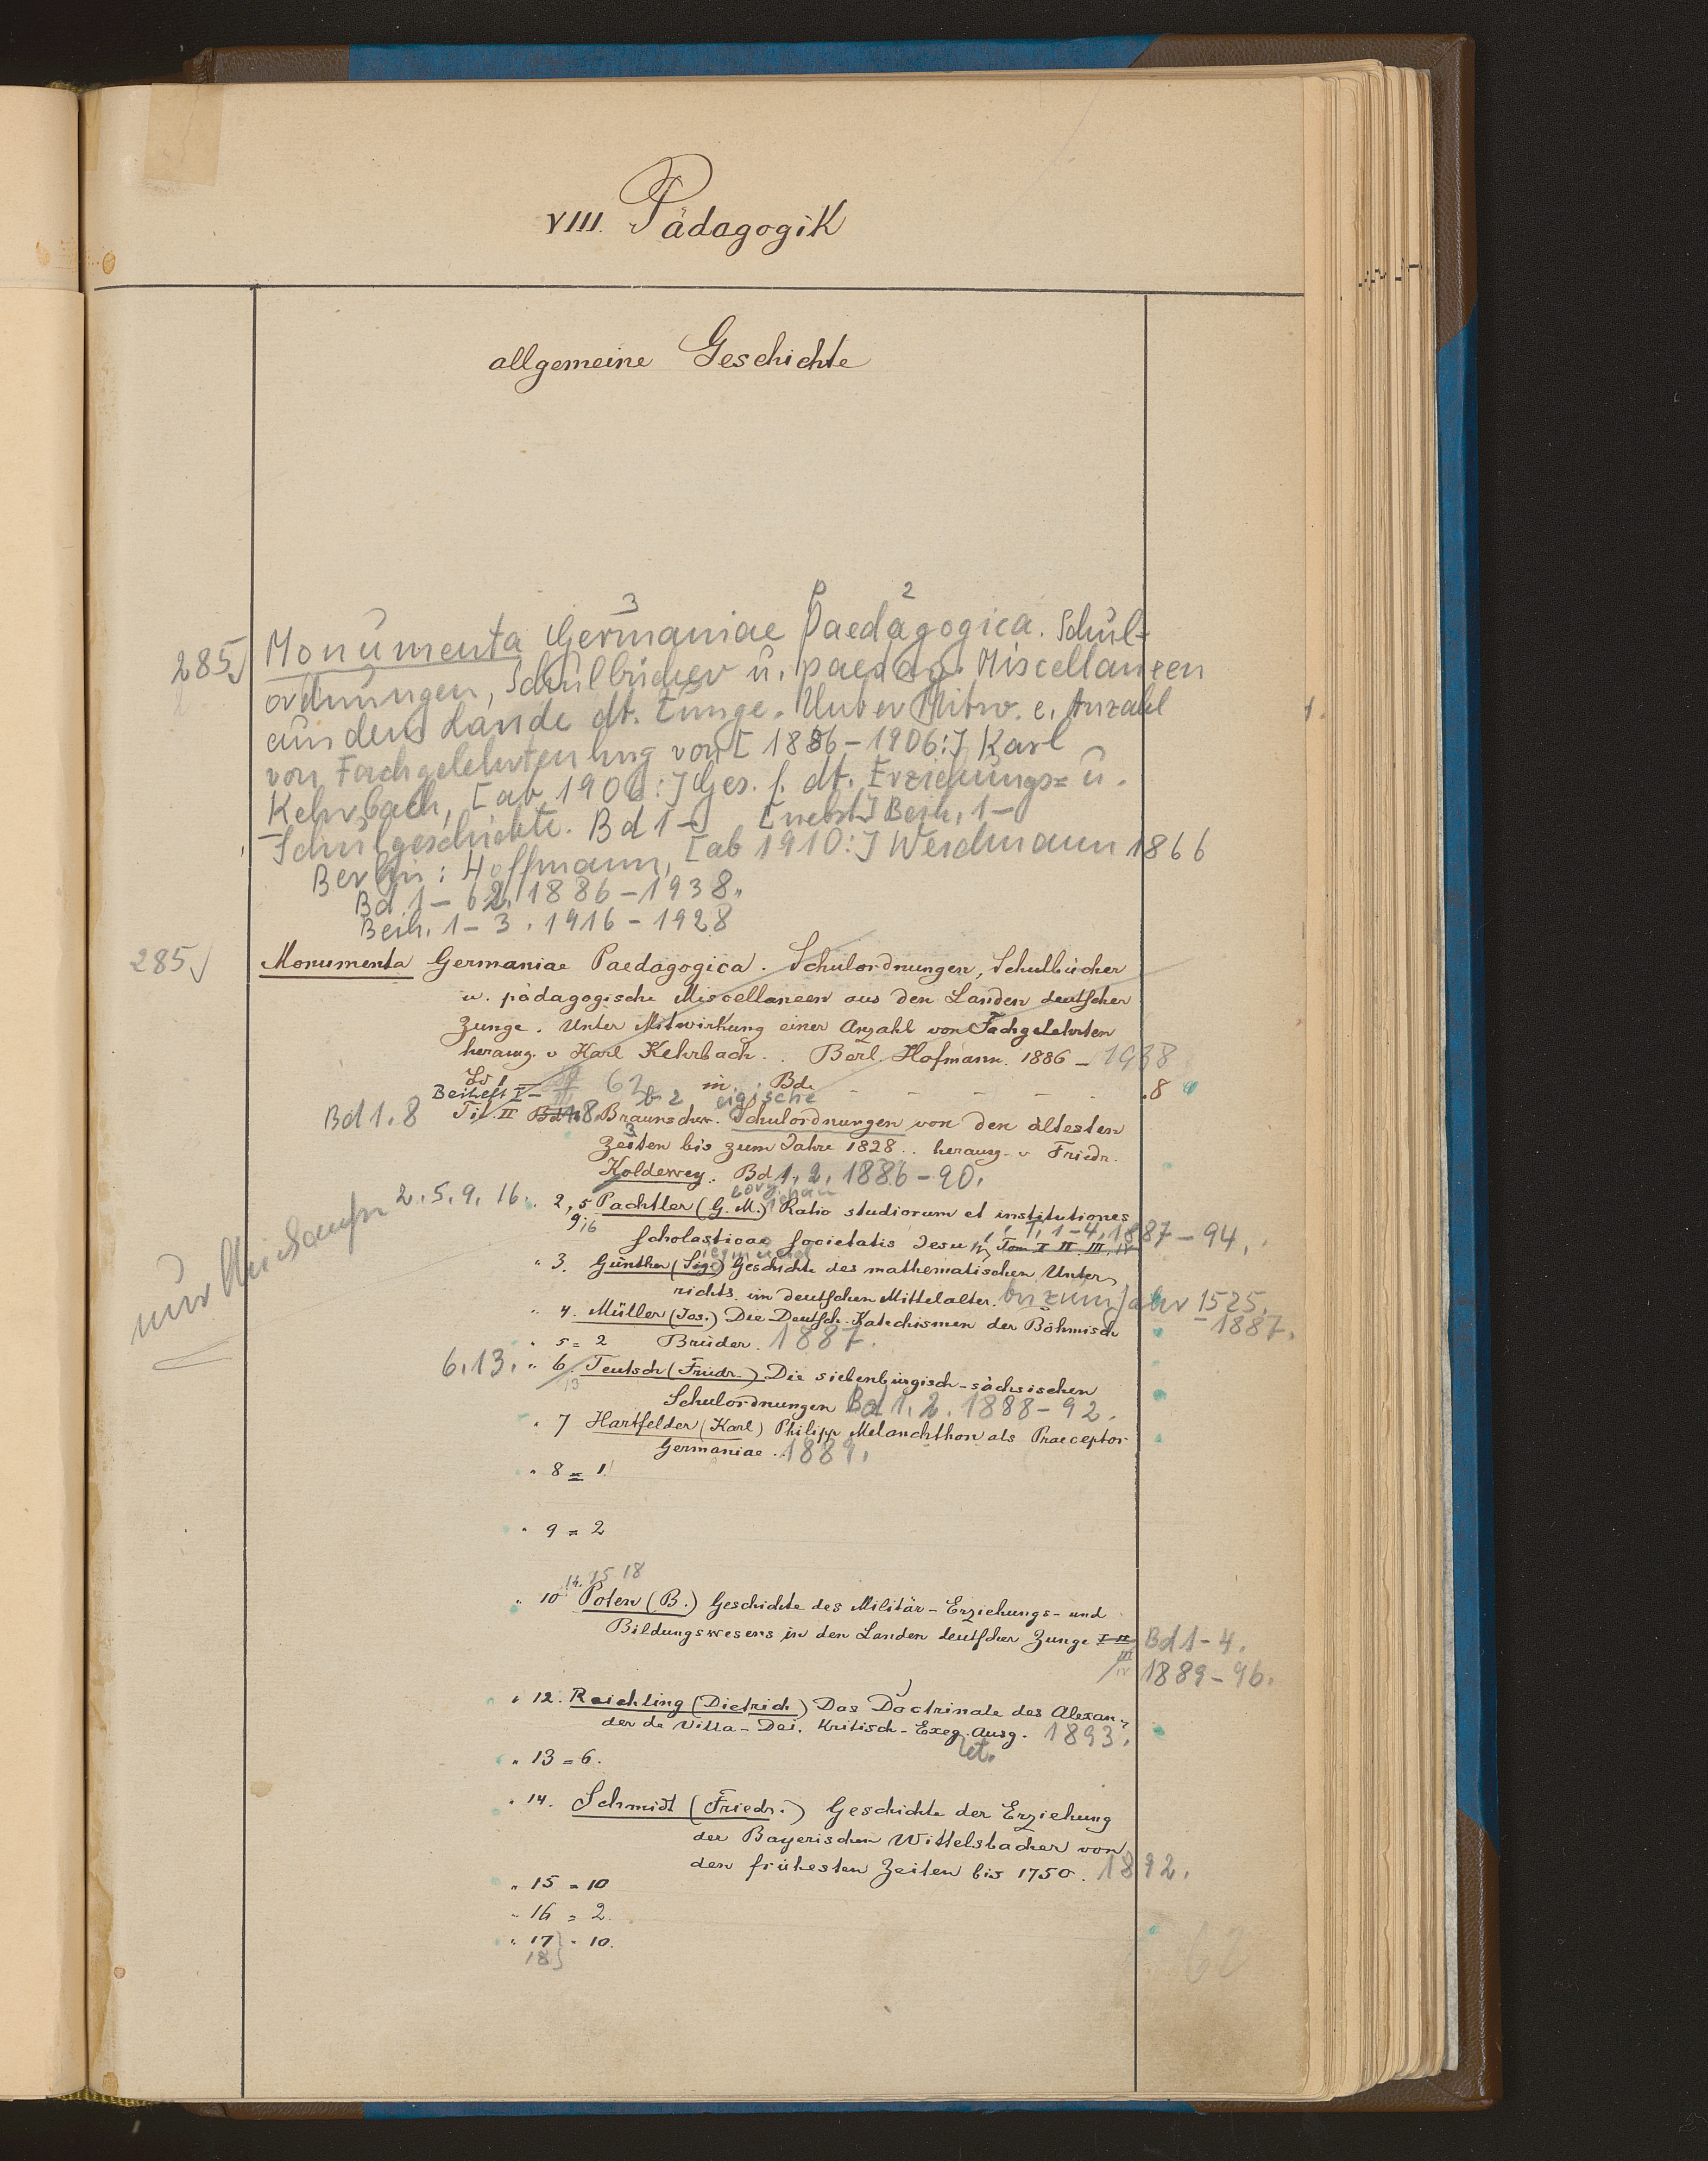 VIII. Pädagogik
allgemeine Geschichte
3 P 2
285 Monumenta Germaniae Paedagogica. Schul-
ordnungen, Schulbücher u. paedag. Miscellaneen
aus dem Lande dt. Zunge. Unter Mitw. e. Anzahl
von Fachgelehrten hrg von [1886-1906:] Karl
Kehrbach, [ab 1906:] Ges. f. dt. Erziehungs= u.
Schulgeschichte. Bd 1- [nebst] Beih. 1-
Berlin: Hoffmann, [ab 1910:] Weidmann 1866
Bd 1-62. 1886-1938.
Beih. 1-3. 1916-1928
285 Monumenta Germaniae Paedagogica. Schulordnungen, Schulbücher
u. pädagogische Miscellaneen aus den Landen deutscher
Zunge. Unter Mitwirkung einer Anzahl von Fachgelehrten
herausg. v Karl Kehrbach. . Berl. Hofmann. 1886 - 1938
62 in Bd. - - - - - .8
Beiheft I - b 2 igische
Bd 1.8 Til. II 8. Braunschw. Schulordnungen von den ältesten
Zeiten bis zum Jahre 1828.. herausg. v Friedr.
Koldewey. Bd 1, 2, 1886-90.
2. 5. 9. 16. 2, 5 Pachtler (G. M.) Ratio studiorum et institutiones
9, 16 scholasticae Societatis Jesu T. 1-4, 1887-94.
Tom I II III, IV
" 3. Günther (Sigismund) Geschichte des mathematischen Unter-
richts im deutschen Mittelalter. bis zum Jahr 1525.
- 1887.
" 4. Müller (Jos.) Die Deutsch. Katechismen der Böhmisch
Brüder. 1887.
" 5 = 2
6, 13. " 6. Teutsch (Friedr.) Die siebenbürgisch-sächsischen
13
Schulordnungen Bd 1, 2. 1888-92.
" 7 Hartfelder (Karl) Philipp Melanchthon als Praeceptor
Germaniae. 1889.
" 8 = 1.
" 9 = 2
14. 15 18
" 10 Poten (B.) Geschichte des Militär-Erziehungs- und
Bildungswesens in den Landen deutscher Zunge I II Bd 1-4.
III
IV 1889-96.
" 12. Reichling (Dietrich) Das Doctrinale des Alexan-
der de Villa-Dei. Kritisch-Exeg. Ausg. 1893.
et.
" 13 = 6.
" 14. Schmidt (Friedr.) Geschichte der Erziehung
der Bayerischen Wittelsbacher von
den frühesten Zeiten bis 1750. 1892.
" 15 = 10
" 16 = 2.
" 17 } = 10.
18 }
62